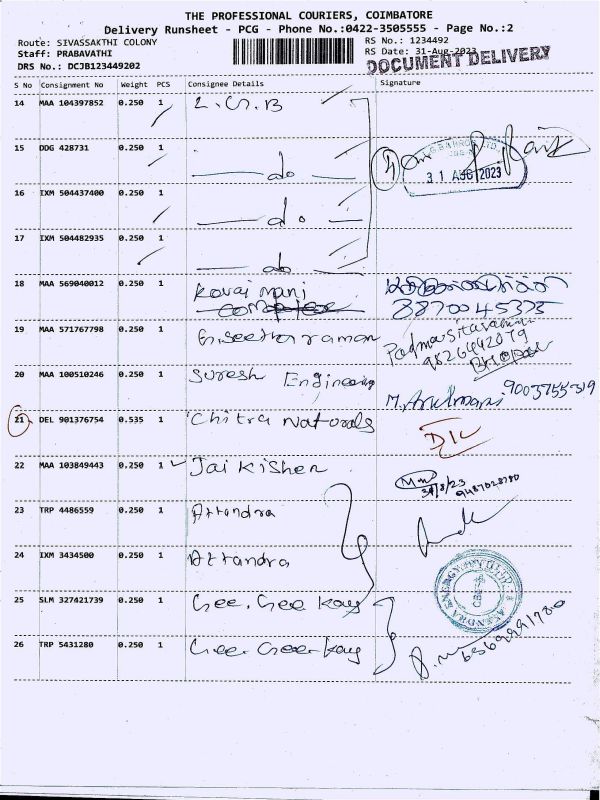 THE PROFESSIONAL COURIERS, COIMBATORE
Delivery Runsheet - PCG - Phone No.:0422-3505555 - Page No.:2
Route: SIVASSAKTHI COLONY
RS No.: 1234492
Staff: PRABAVATHI
RS Date: 31-Aug-2023
DRS No.: DCJB123449202
DOCUMENT DELIVERY
S No Consignment No Weight PCS Consignee Details Signature
14 MAA 104397852 0.250 1 L.G.B
15 DDG 428731 0.250 1 do
31 AUG 2023
16 IXM 504437400 0.250 1 do
17 IXM 504482935 0.250 1 do
18 MAA 569040012 0.250 1 Kovai mani
8870045375
19 MAA 571767798 0.250 1 G.Seetharaman
Padma Sitaraman
9826442079
20 MAA 100510246 0.250 1 Suresh Engineering
M. Arulmani 9003755319
21 DEL 901376754 0.535 1 Chitra Naturals
D/L
22 MAA 103849443 0.250 1 Jai Kishen
31/8/23
23 TRP 4486559 0.250 1 Attandra
24 IXM 3434500 0.250 1 Attandra
25 SLM 327421739 0.250 1 Gee. Gee Kay
26 TRP 5431280 0.250 1 Gee. Gee Kay